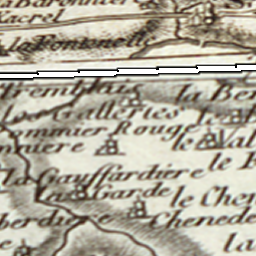 la Baronnie
Nacrel
la Fontenelle
Tremblais
la Ber
les Galleries
le
Pommier Rouge
le Val
nniere
le B
la Gauffardiere
la Garde
le Chen
berdiere
Chenede
la